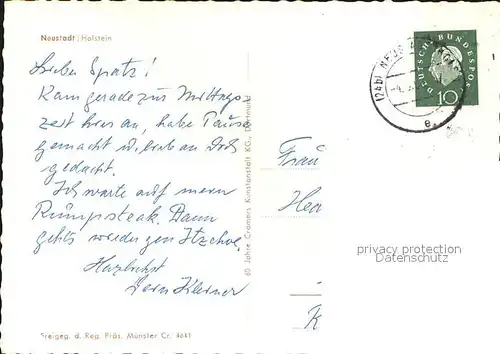 Neustadt / Holstein
Lieber Spatz!
Kam gerade zur Mittags-
zeit hier an, habe Pause
gemacht u. hab an Dich
gedacht.
Ich warte auf mein
Rumpsteak. Dann
gehts wieder gen Itzehoe.
Herzlichst
Dein
Freigeg. d. Reg. Präs. Münster Cr. 4641
60 Jahre Cramers Kunstanstalt KG., Dortmund
DEUTSCHE BUNDESPOST
10
(24b) NEUSTADT
e
Frau
K
privacy protection
Datenschutz